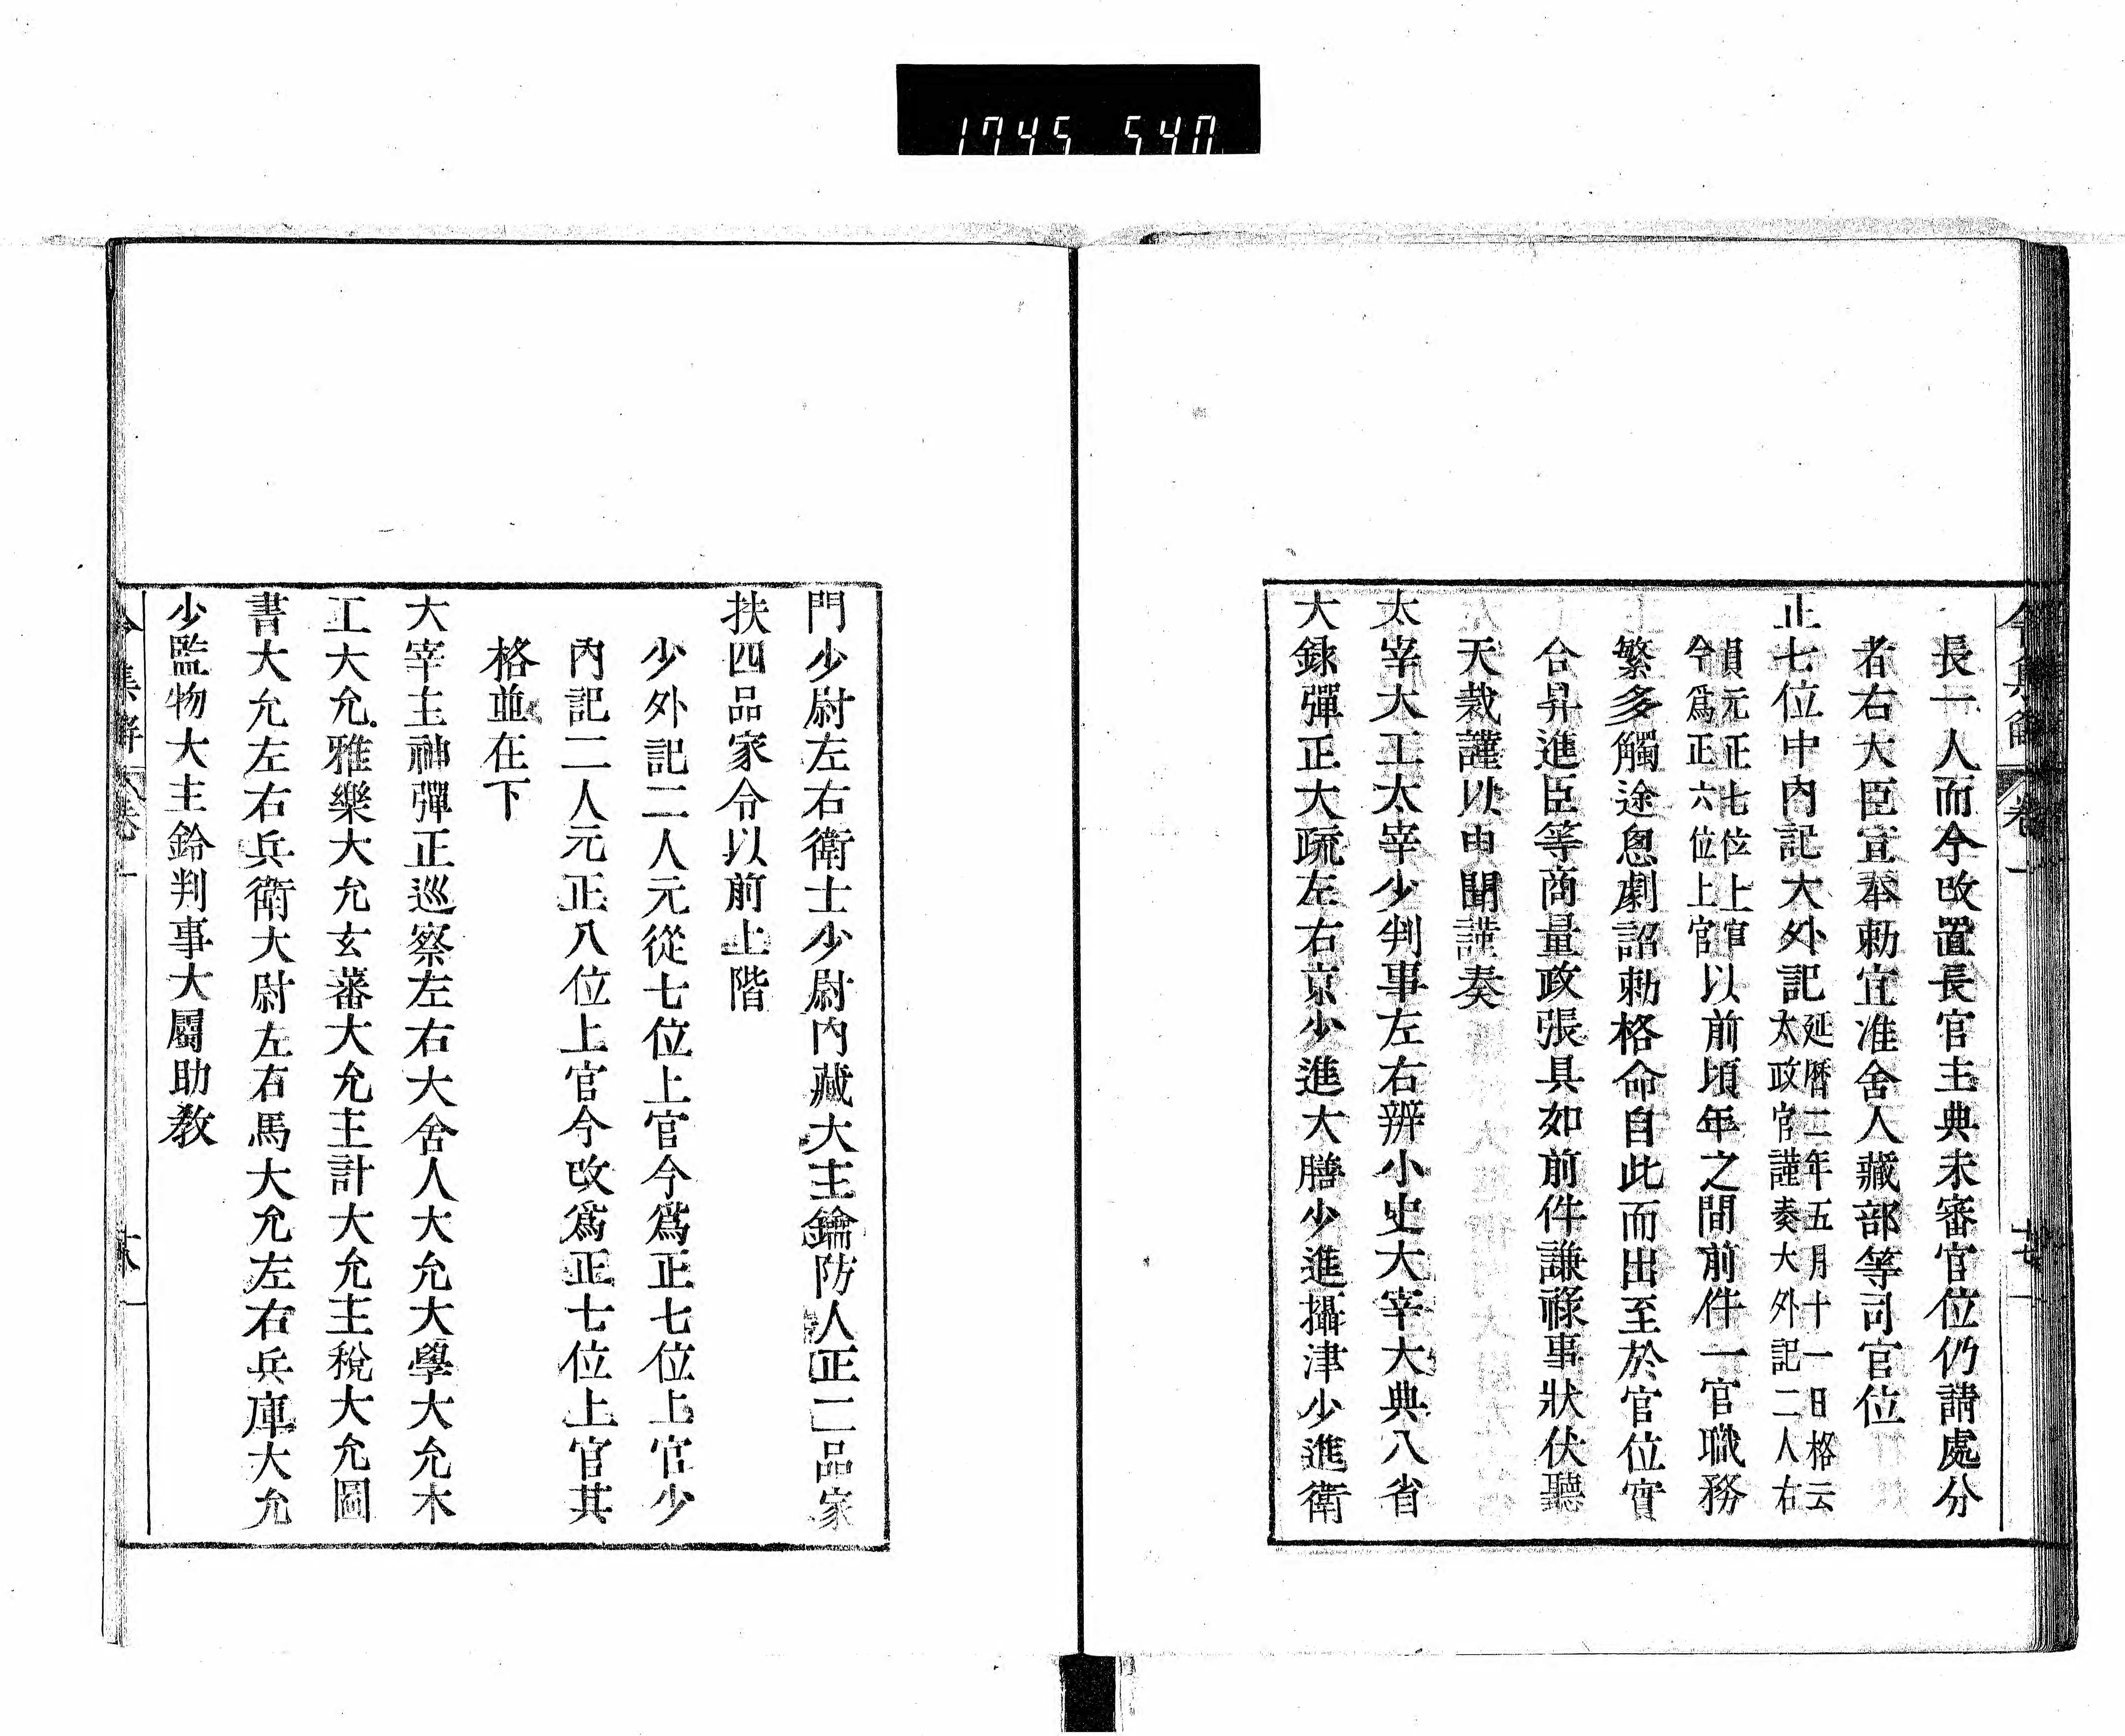 1745 540
令集解 卷一 十七
長一人而今改置長官主典未審官位仍請處分
者右大臣宣奉勅宜准舍人藏部等司官位
正七位中内記大外記延暦二年五月十一日格云
太政官謹奏大外記二人右
員元正七位上官
今爲正六位上官以前頃年之間前件一官職務
繁多觸途怱劇詔勅格命自此而出至於官位實
合昇進臣等商量政張具如前件謙祿事狀伏聽
天裁謹以申聞謹奏
太宰大工太宰少判事左右辨小史大宰大典八省
大録彈正大疏左右京少進大膳少進攝津少進衛
門少尉左右衛士少尉内藏大主鑰防人正二品家
扶四品家令以前上階
少外記二人元從七位上官今爲正七位上官少
内記二人元正八位上官今改爲正七位上官其
格並在下
大宰主神彈正巡察左右大舍人大允大學大允木
工大允雅樂大允玄蕃大允主計大允主税大允圖
書大允左右兵衛大尉左右馬大允左右兵庫大允
少監物大主鈴判事大屬助教
令集解 卷一